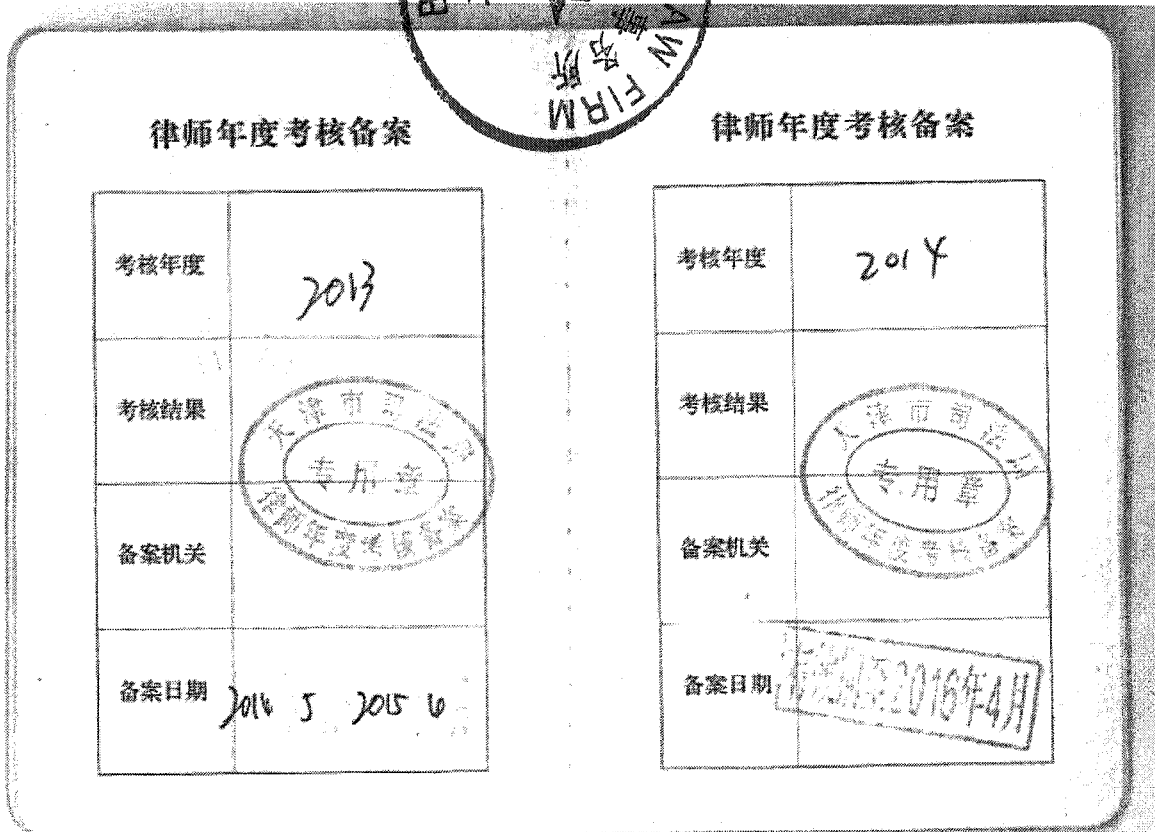 务所
LAW FIRM
律师年度考核备案
考核年度 2013
考核结果
天津市司法局
专用章
律师年度考核备案
备案机关
备案日期 2014 5 2015 6
律师年度考核备案
考核年度 2014
考核结果
天津市司法局
专用章
律师年度考核备案
备案机关
备案日期
2016年4月